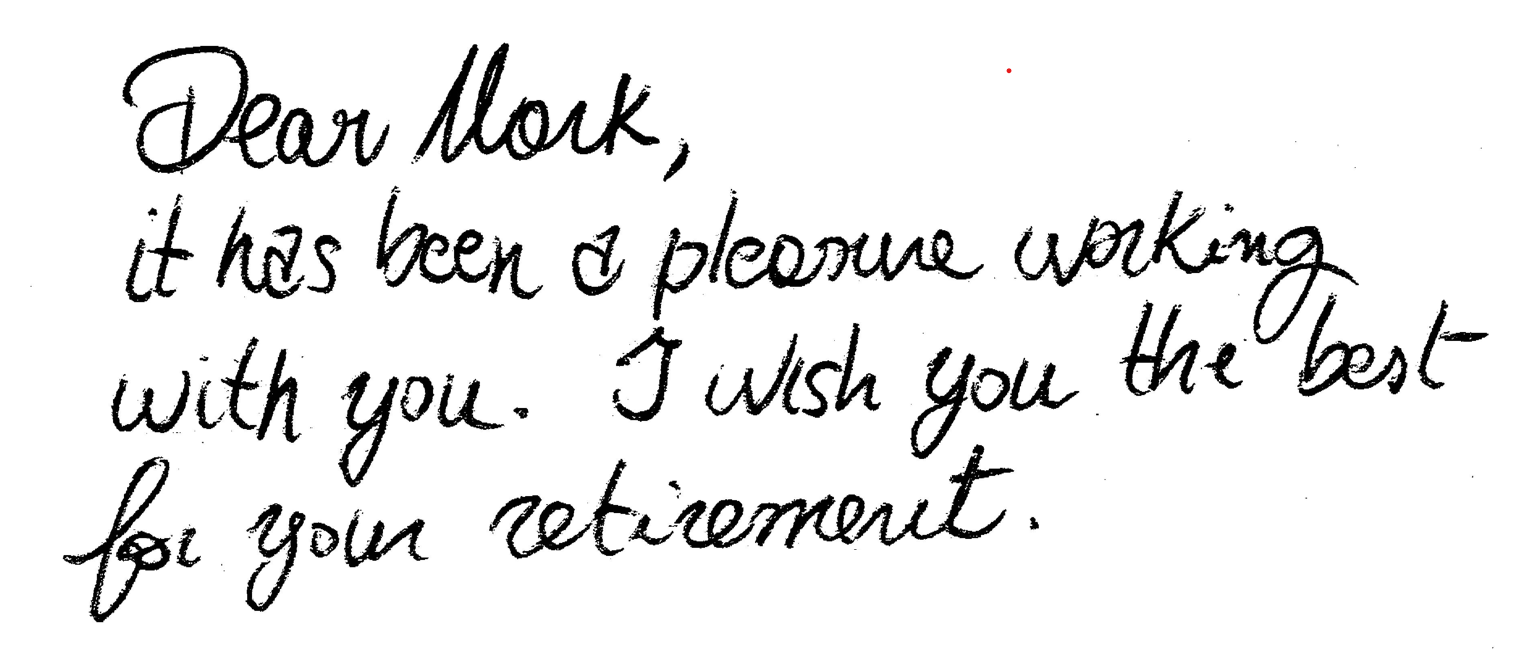 Dear Mark,
it has been a pleasure working
with you. I wish you the best
for your retirement.